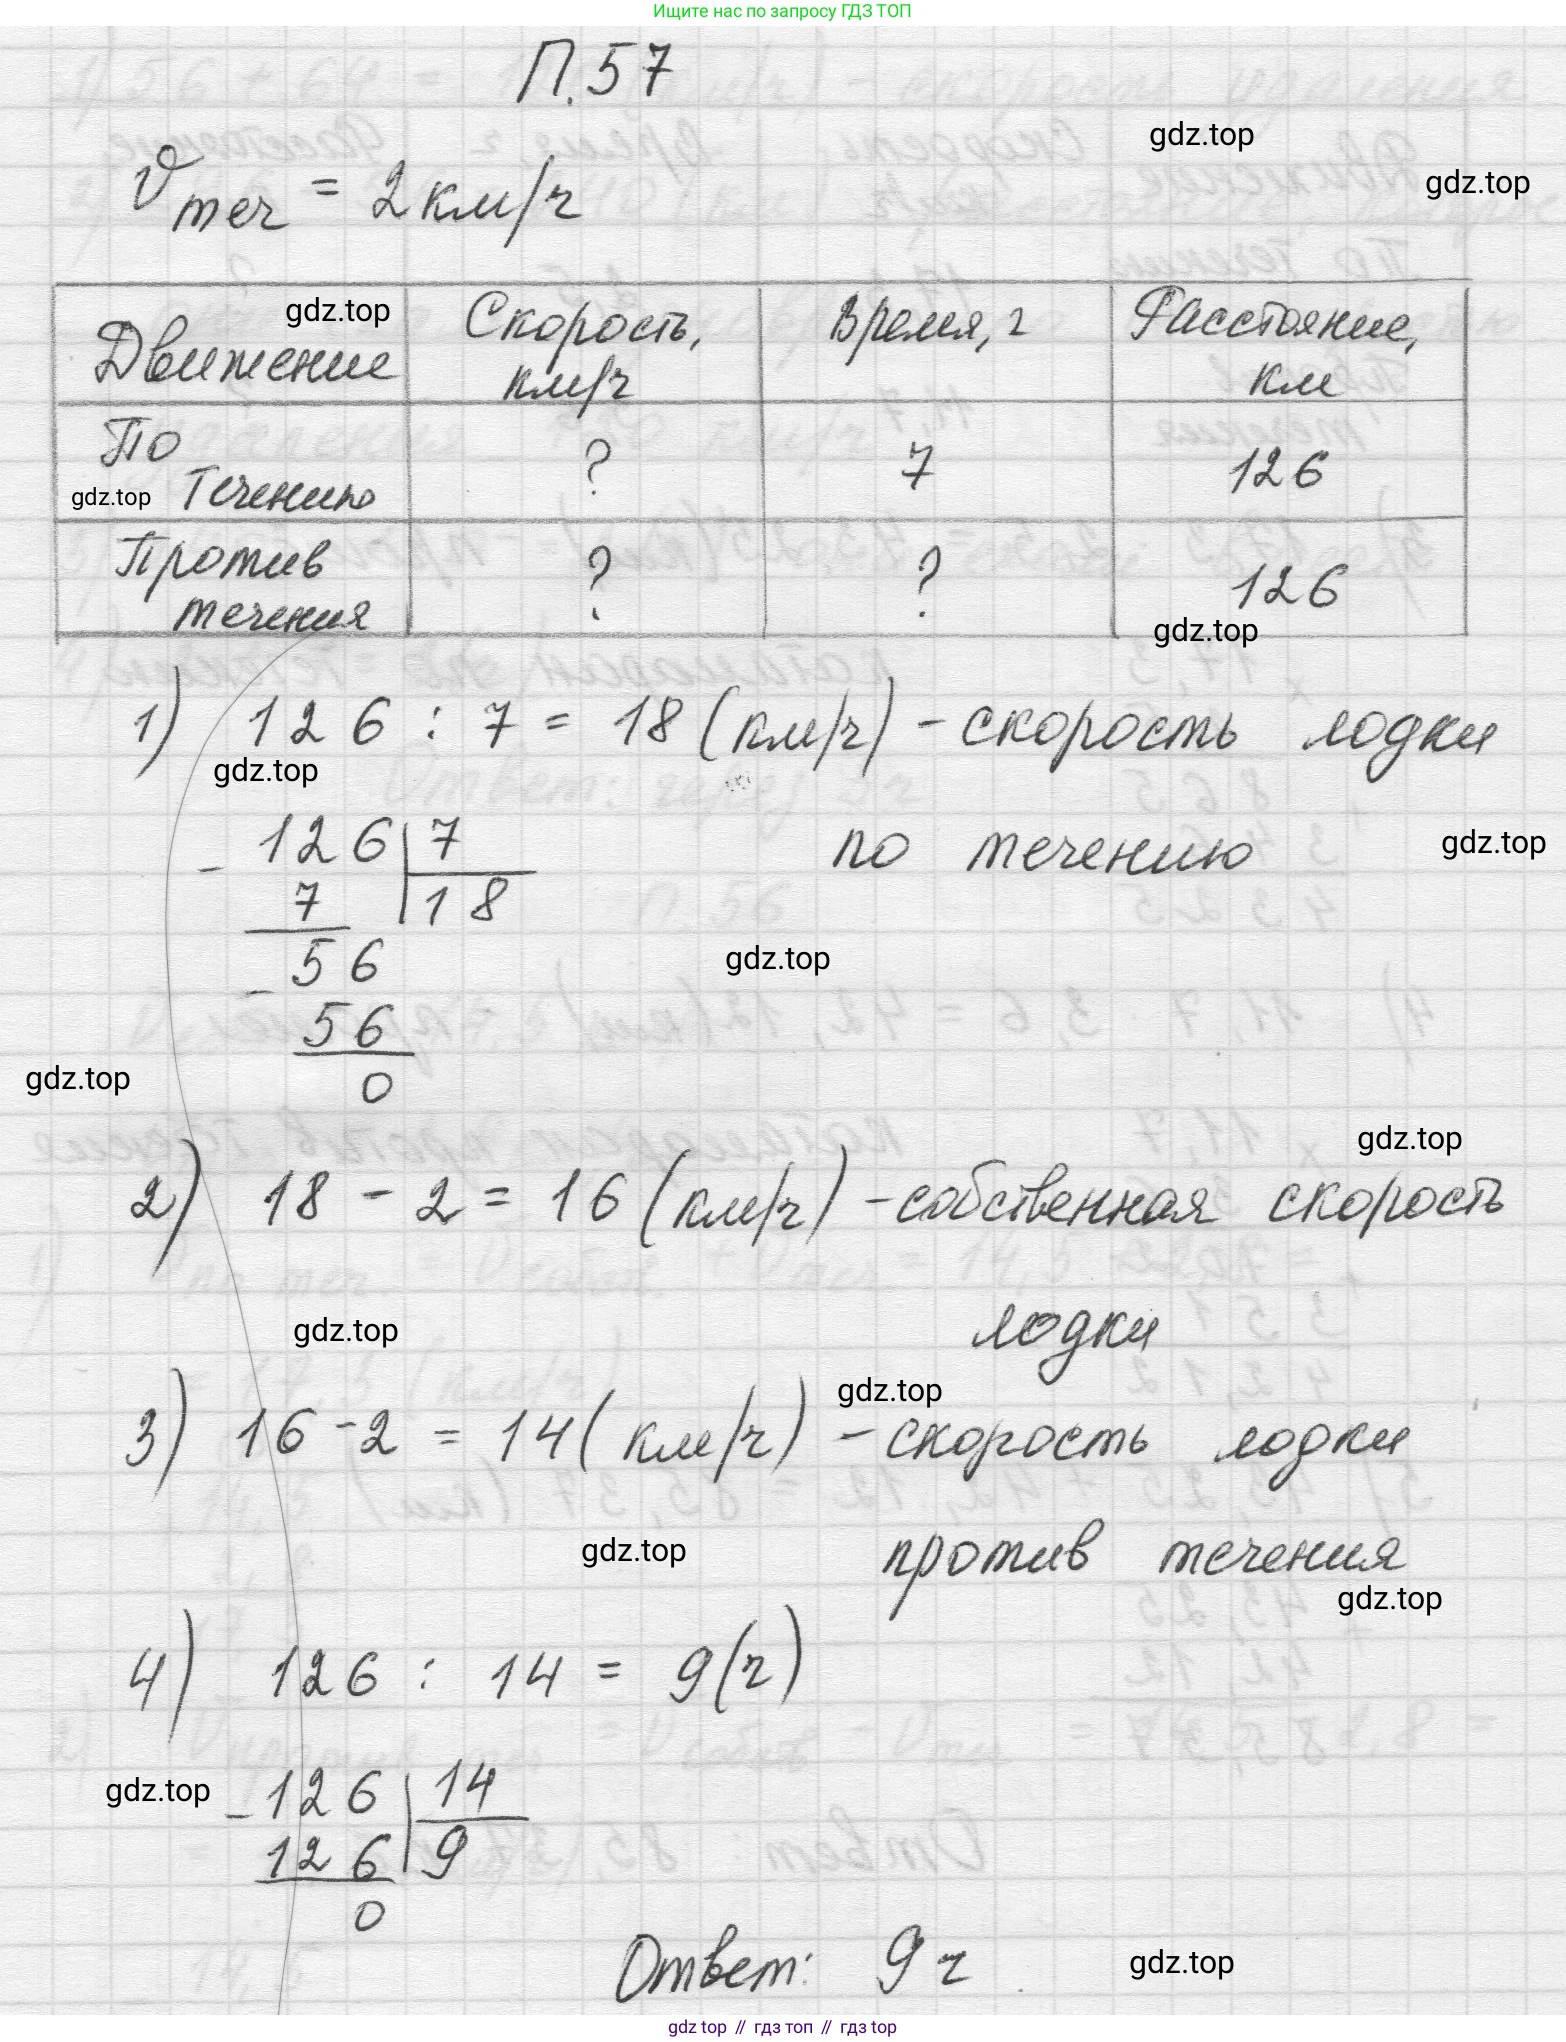 Ищите нас по запросу ГДЗ ТОП
П.57
gdz.top
vтеч = 2 км/ч
gdz.top
gdz.top
Движение
Скорость, км/ч
Время, ч
Расстояние, км
По течению
?
7
126
gdz.top
Против течения
?
?
126
gdz.top
1) 126 : 7 = 18 (км/ч) - скорость лодки
gdz.top
по течению
gdz.top
- 126 | 7
7 | 18
- 56
56
0
gdz.top
gdz.top
gdz.top
2) 18 - 2 = 16 (км/ч) - собственная скорость
лодки
gdz.top
gdz.top
3) 16 - 2 = 14 (км/ч) - скорость лодки
против течения
gdz.top
gdz.top
4) 126 : 14 = 9 (ч)
gdz.top
- 126 | 14
126 | 9
0
Ответ: 9 ч
gdz.top
gdz top // гдз топ // гдз top